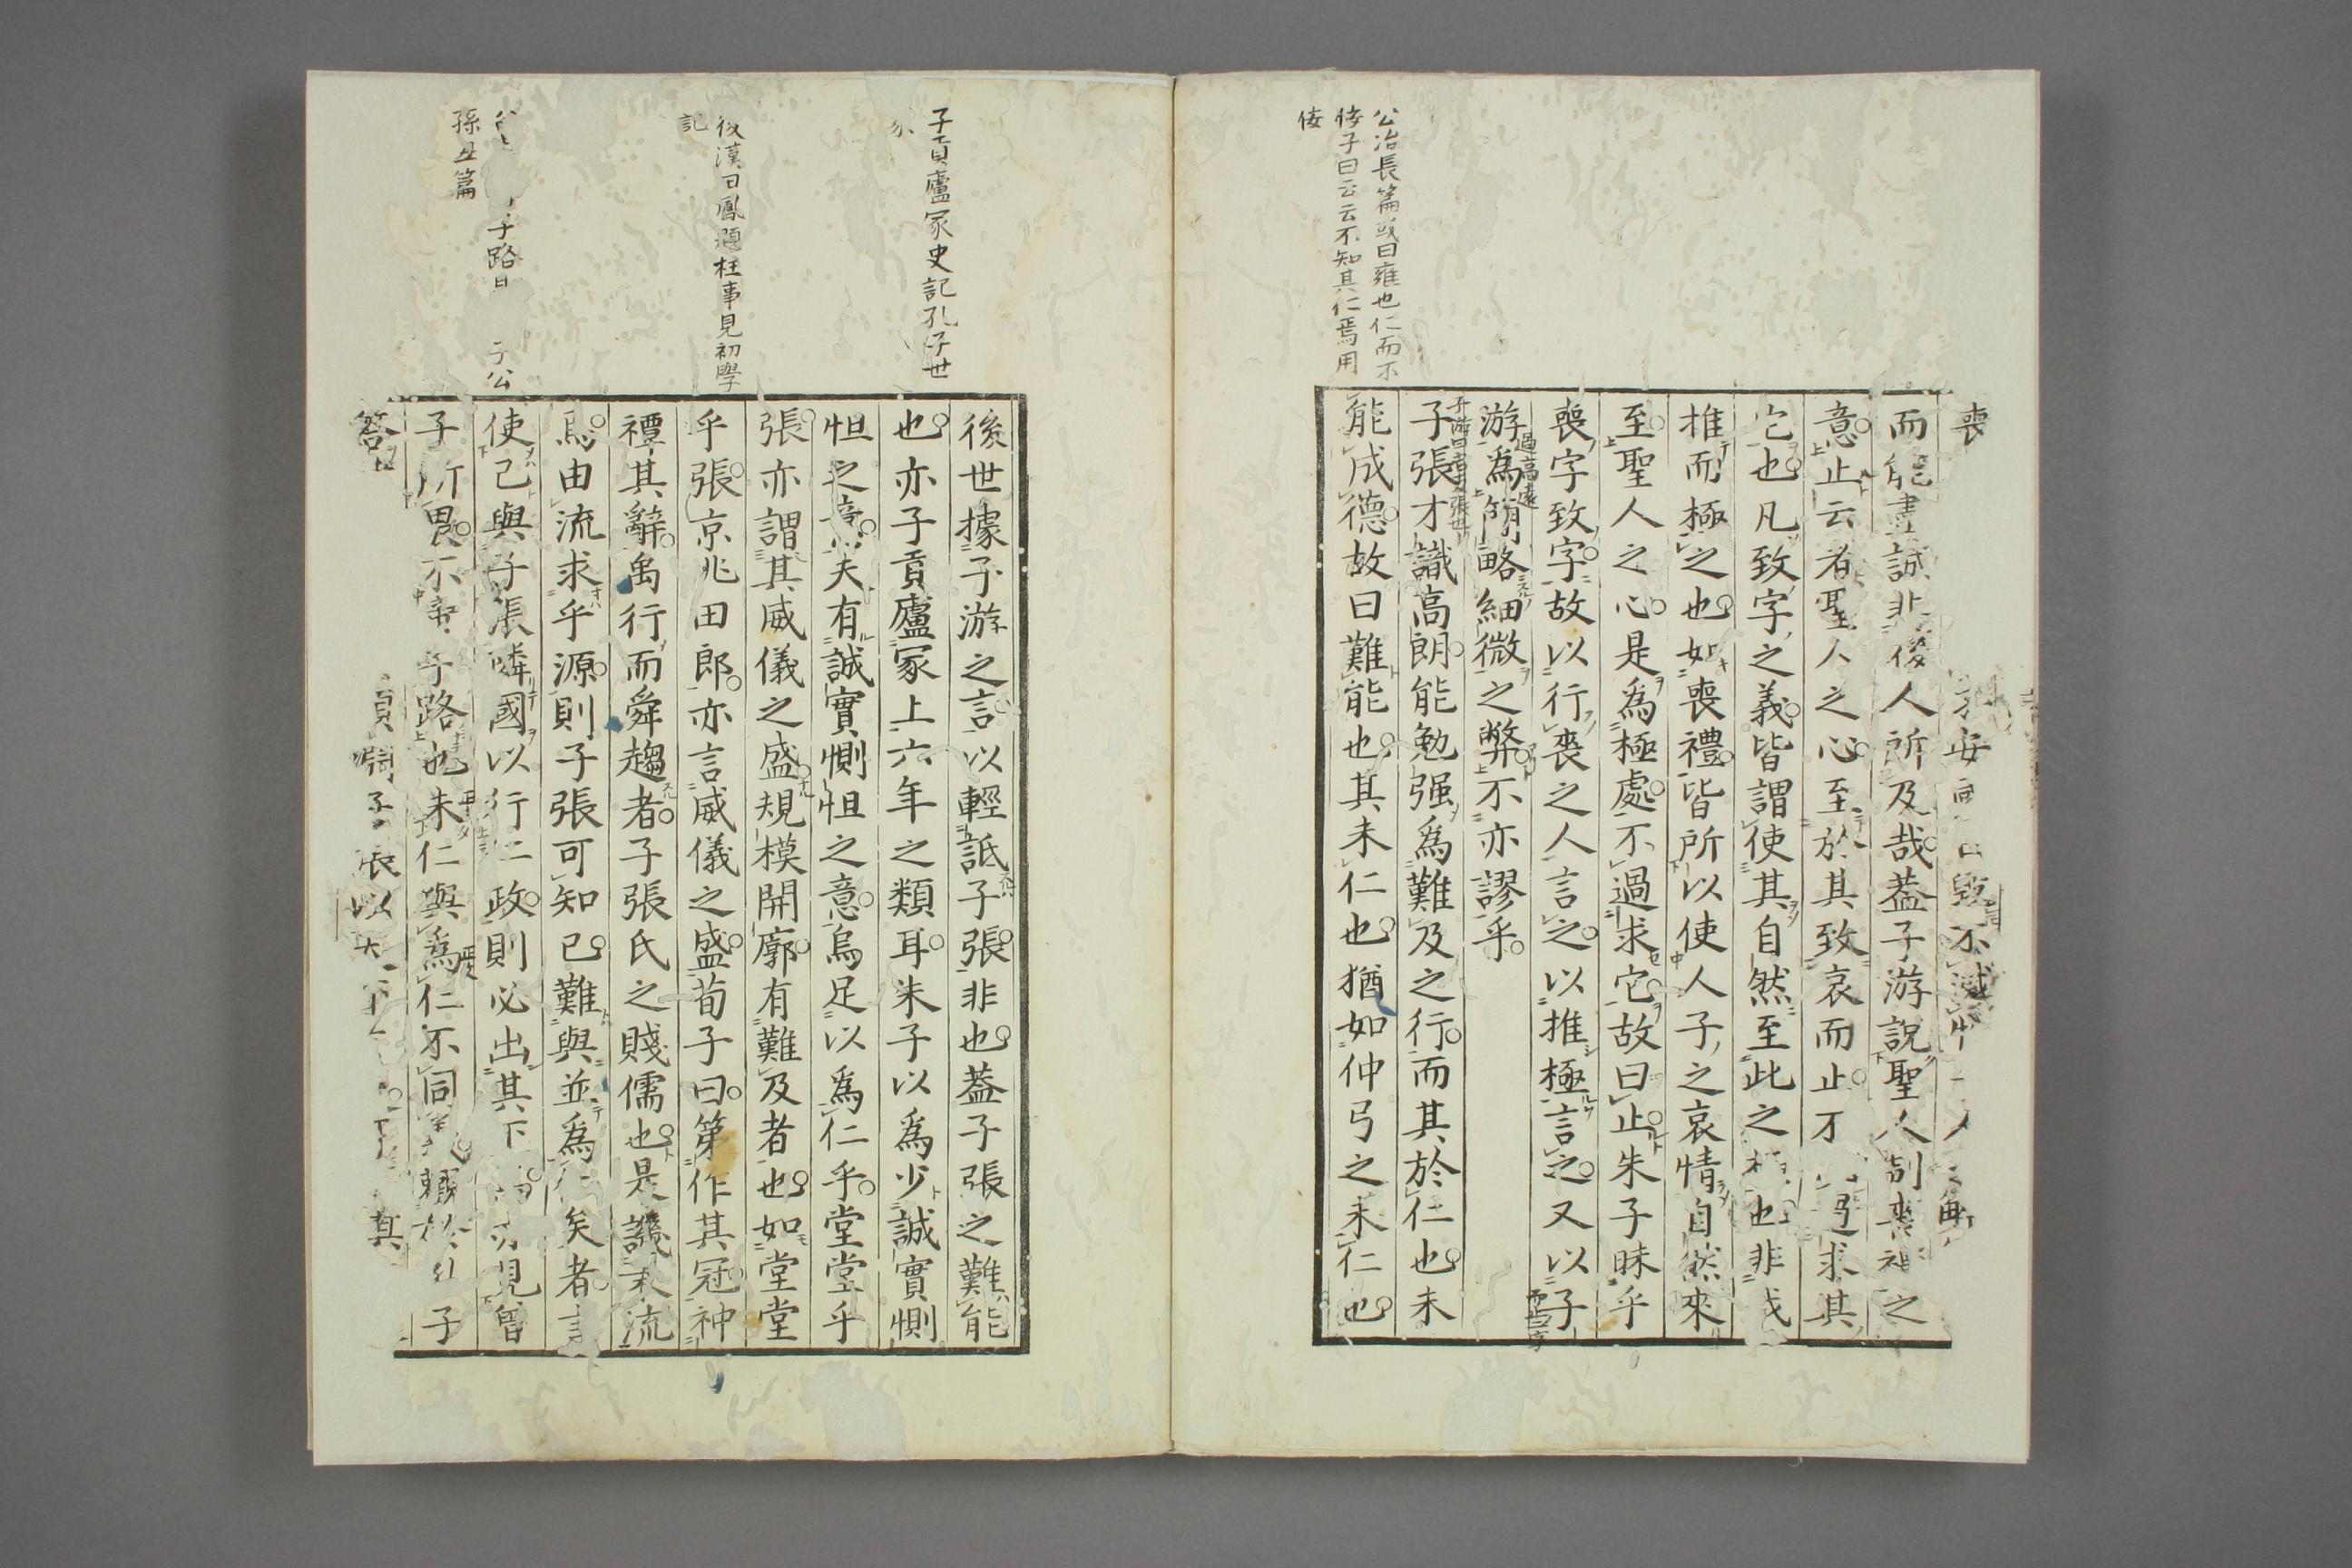 公冶長篇或曰雍也仁而不
佞子曰云云不知其仁焉用
佞
喪
而能盡誠非後人所及哉蓋子游說聖人制喪禮之
意止云者聖人之心至於其致哀而止不 過求其
它也凡致字之義皆謂使其自然至此之極也非戒
推而極之也如喪禮皆所以使人子之哀情自然來
至聖人之心是爲極處不過求它故曰止朱子昧乎
喪字致字故以行喪之人言之以推極言之又以子
而止字
過高遠
游爲簡略細微之弊不亦謬乎
子游曰吾友張也
子張才識高朗能勉强爲難及之行而其於仁也未
能成德故曰難能也其未仁也猶如仲弓之未仁也
子貢廬冢史記孔子世
家
後漢田鳳題柱事見初學
記
子路曰 子公
孫丑篇
後世據子游之言以輕詆子張非也蓋子張之難能
也亦子貢廬冢上六年之類耳朱子以爲少誠實惻
怛之意夫有誠實惻怛之意烏足以爲仁乎堂堂乎
張亦謂其威儀之盛規模開廓有難及者也如堂堂
乎張京兆田郎亦言威儀之盛荀子曰第作其冠神
禫其辭禹行而舜趨者子張氏之賤儒也是譏末流
焉由流求乎源則子張可知已難與並爲仁矣者言
使己與子張隣國以行仁政則必出其下 見曾
子所畏不 子路也未仁與爲仁不同 子
答 顏淵子張以 其